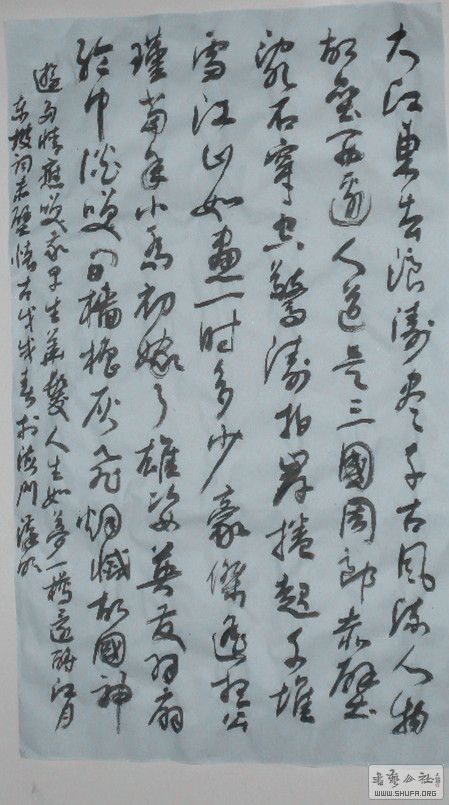 大江東去浪濤尽千古風流人物
故壘西邊人道是三國周郎赤壁
乱石穿空驚濤拍岸捲起千堆
雪江山如畫一时多少豪傑遙想公
瑾當年小喬初嫁了雄姿英發羽扇
綸巾談笑间檣櫓灰飛烟滅故國神
遊多情應笑我早生華髮人生如夢一樽還酹江月
东坡词赤壁懷古
书艺公社
WWW.SHUFA.ORG